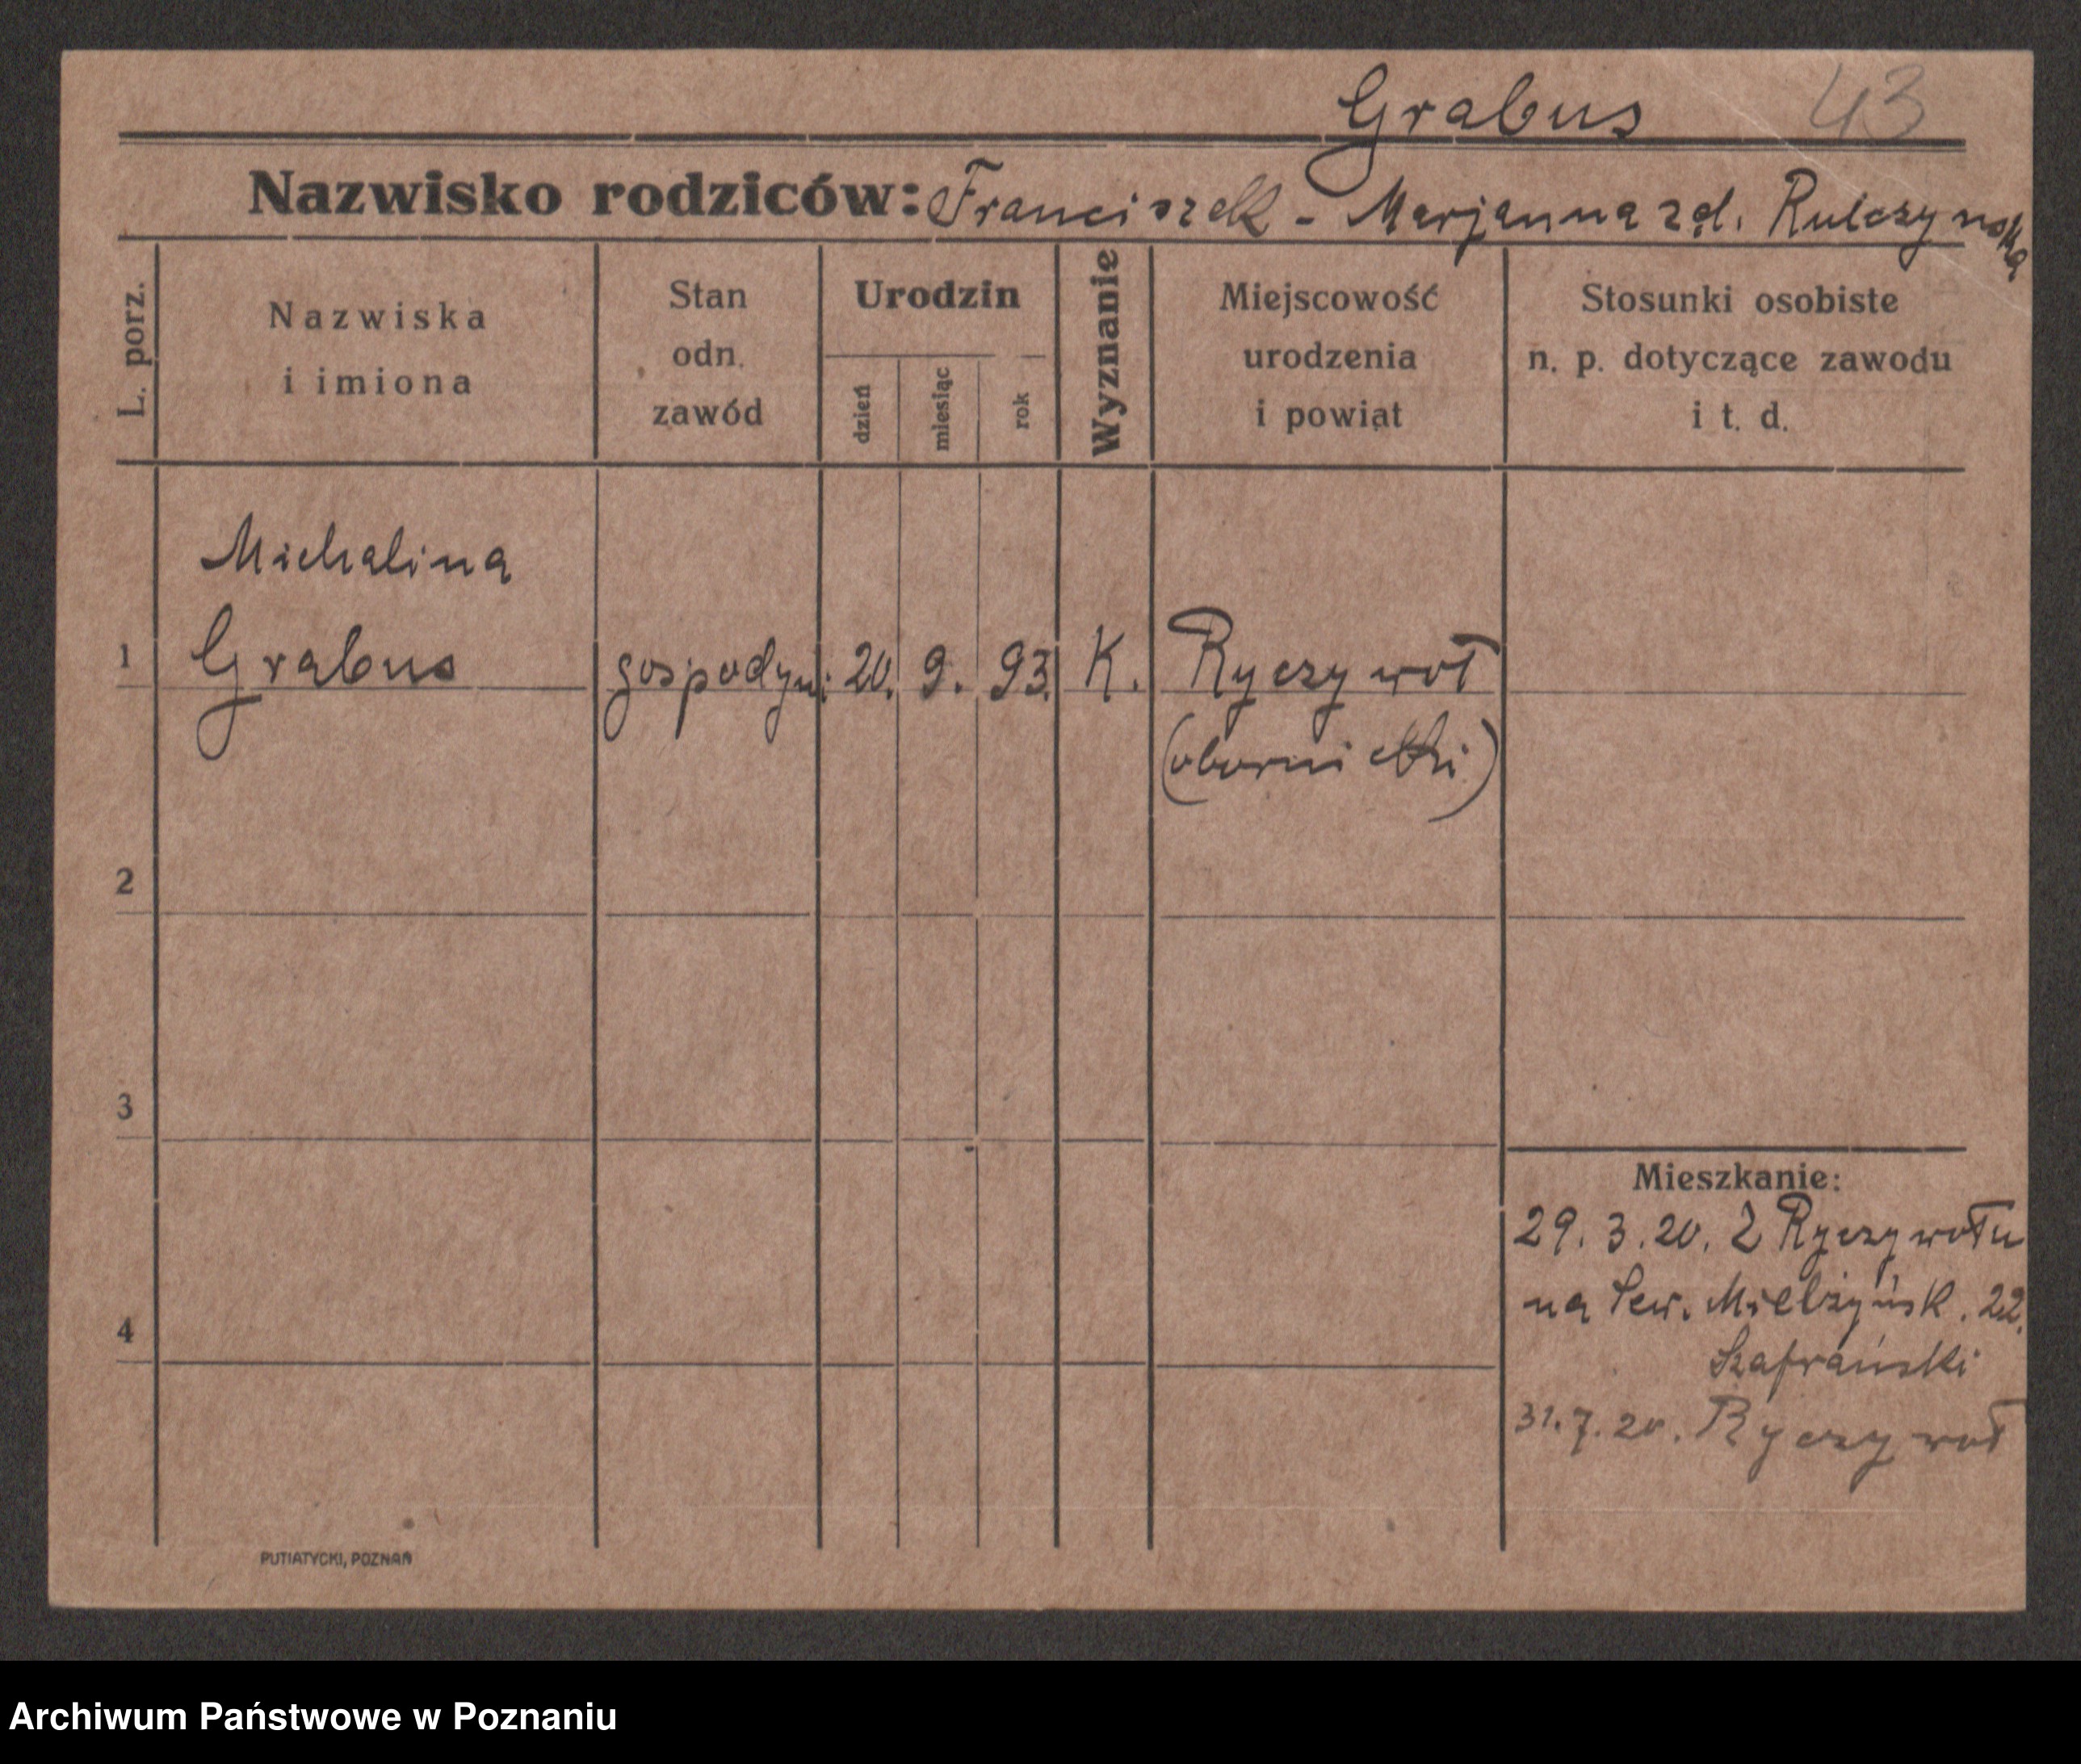 Grabus 43
Nazwisko rodziców: Franciszek - Marjanna zd. Rulczynska
L. porz.
Nazwiska
i imiona
Stan
odn.
zawód
Urodzin
dzień
miesiąc
rok
Wyznanie
Miejscowość
urodzenia
i powiat
Stosunki osobiste
n. p. dotyczące zawodu
i t. d.
Michalina
1 Grabus gospodyni 20. 9. 93. K. Ryczywoł
(obornicki)
2
3
4
Mieszkanie:
29. 3. 20. Z Ryczywołu
na Sew. Mielżyńsk. 22.
Szafrański
31. 7. 20. Ryczywoł
PUTIATYCKI, POZNAŃ
Archiwum Państwowe w Poznaniu